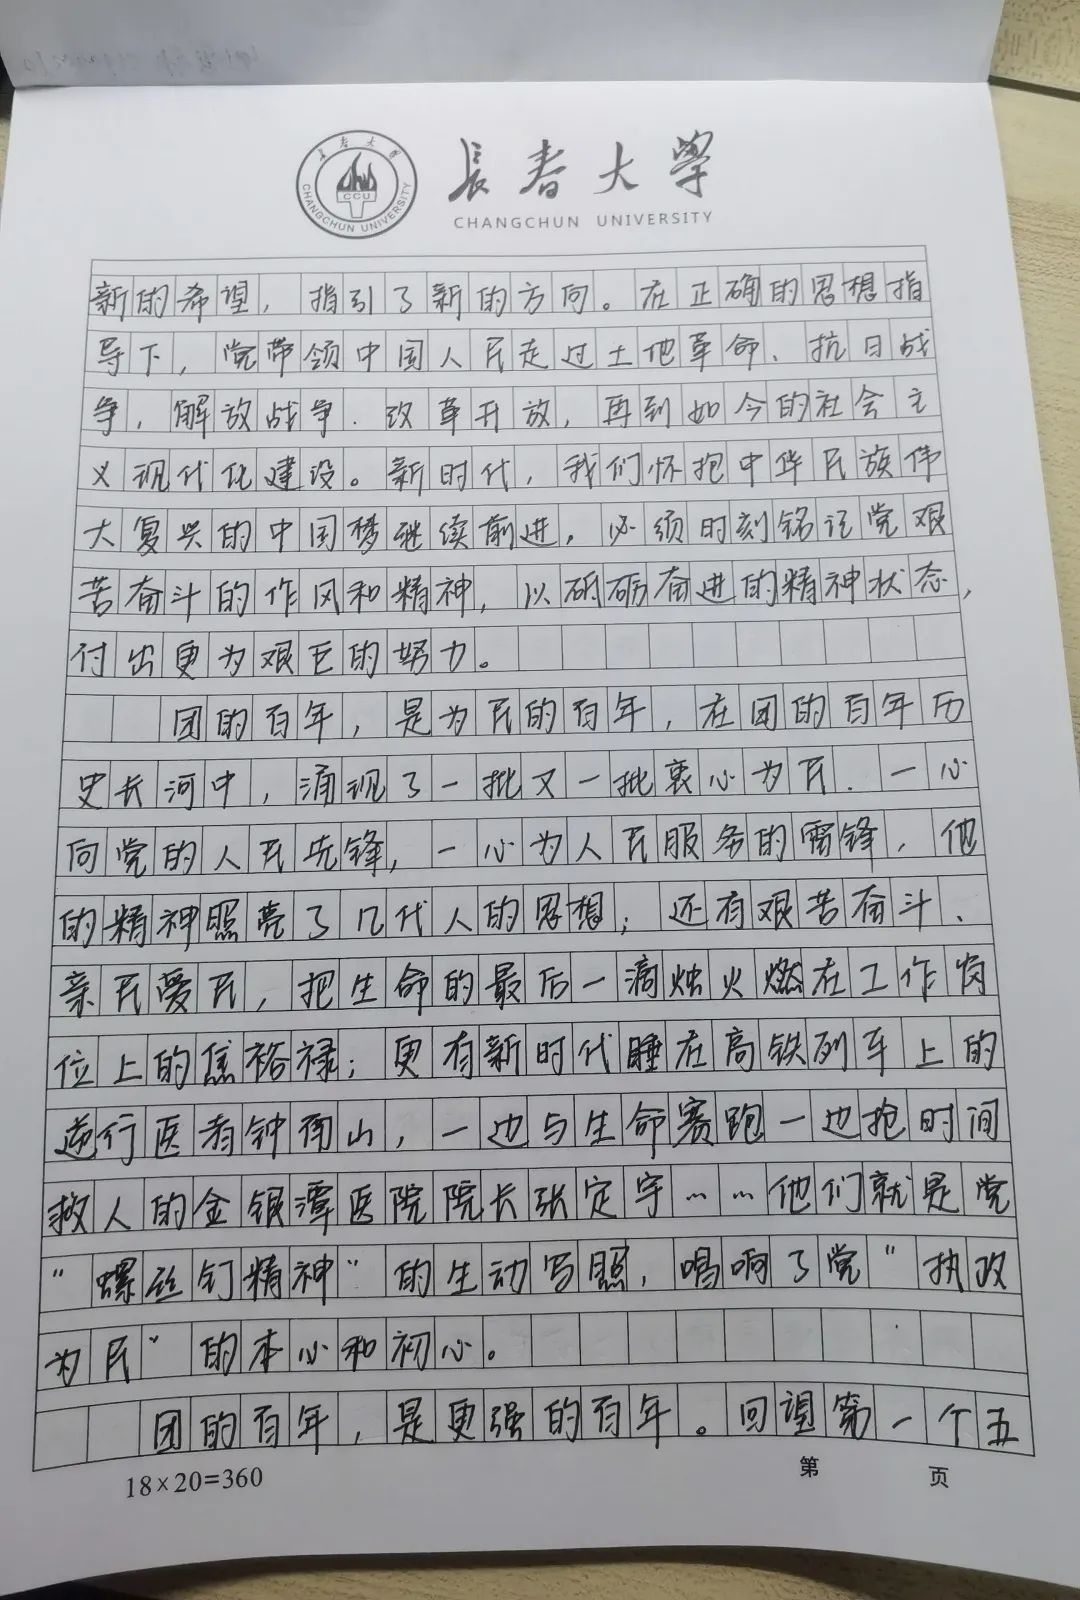 長春大學
CHANGCHUN UNIVERSITY
新的希望，指引了新的方向。在正确的思想指
导下，党带领中国人民走过土地革命、抗日战
争，解放战争．改革开放，再到如今的社会主
义现代化建设。新时代，我们怀抱中华民族伟
大复兴的中国梦继续前进，必须时刻铭记党艰
苦奋斗的作风和精神，以砥砺奋进的精神状态，
付出更为艰巨的努力。
团的百年，是为民的百年，在团的百年历
史长河中，涌现了一批又一批衷心为民．一心
向党的人民先锋，一心为人民服务的雷锋，他
的精神照亮了几代人的思想；还有艰苦奋斗、
亲民爱民，把生命的最后一滴烛火燃在工作岗
位上的焦裕禄；更有新时代睡在高铁列车上的
逆行医者钟南山，一边与生命赛跑一边抢时间
救人的金银潭医院院长张定宇……他们就是党
“螺丝钉精神”的生动写照，唱响了党“执政
为民”的本心和初心。
团的百年，是更强的百年。回望第一个五
18×20=360
第 页